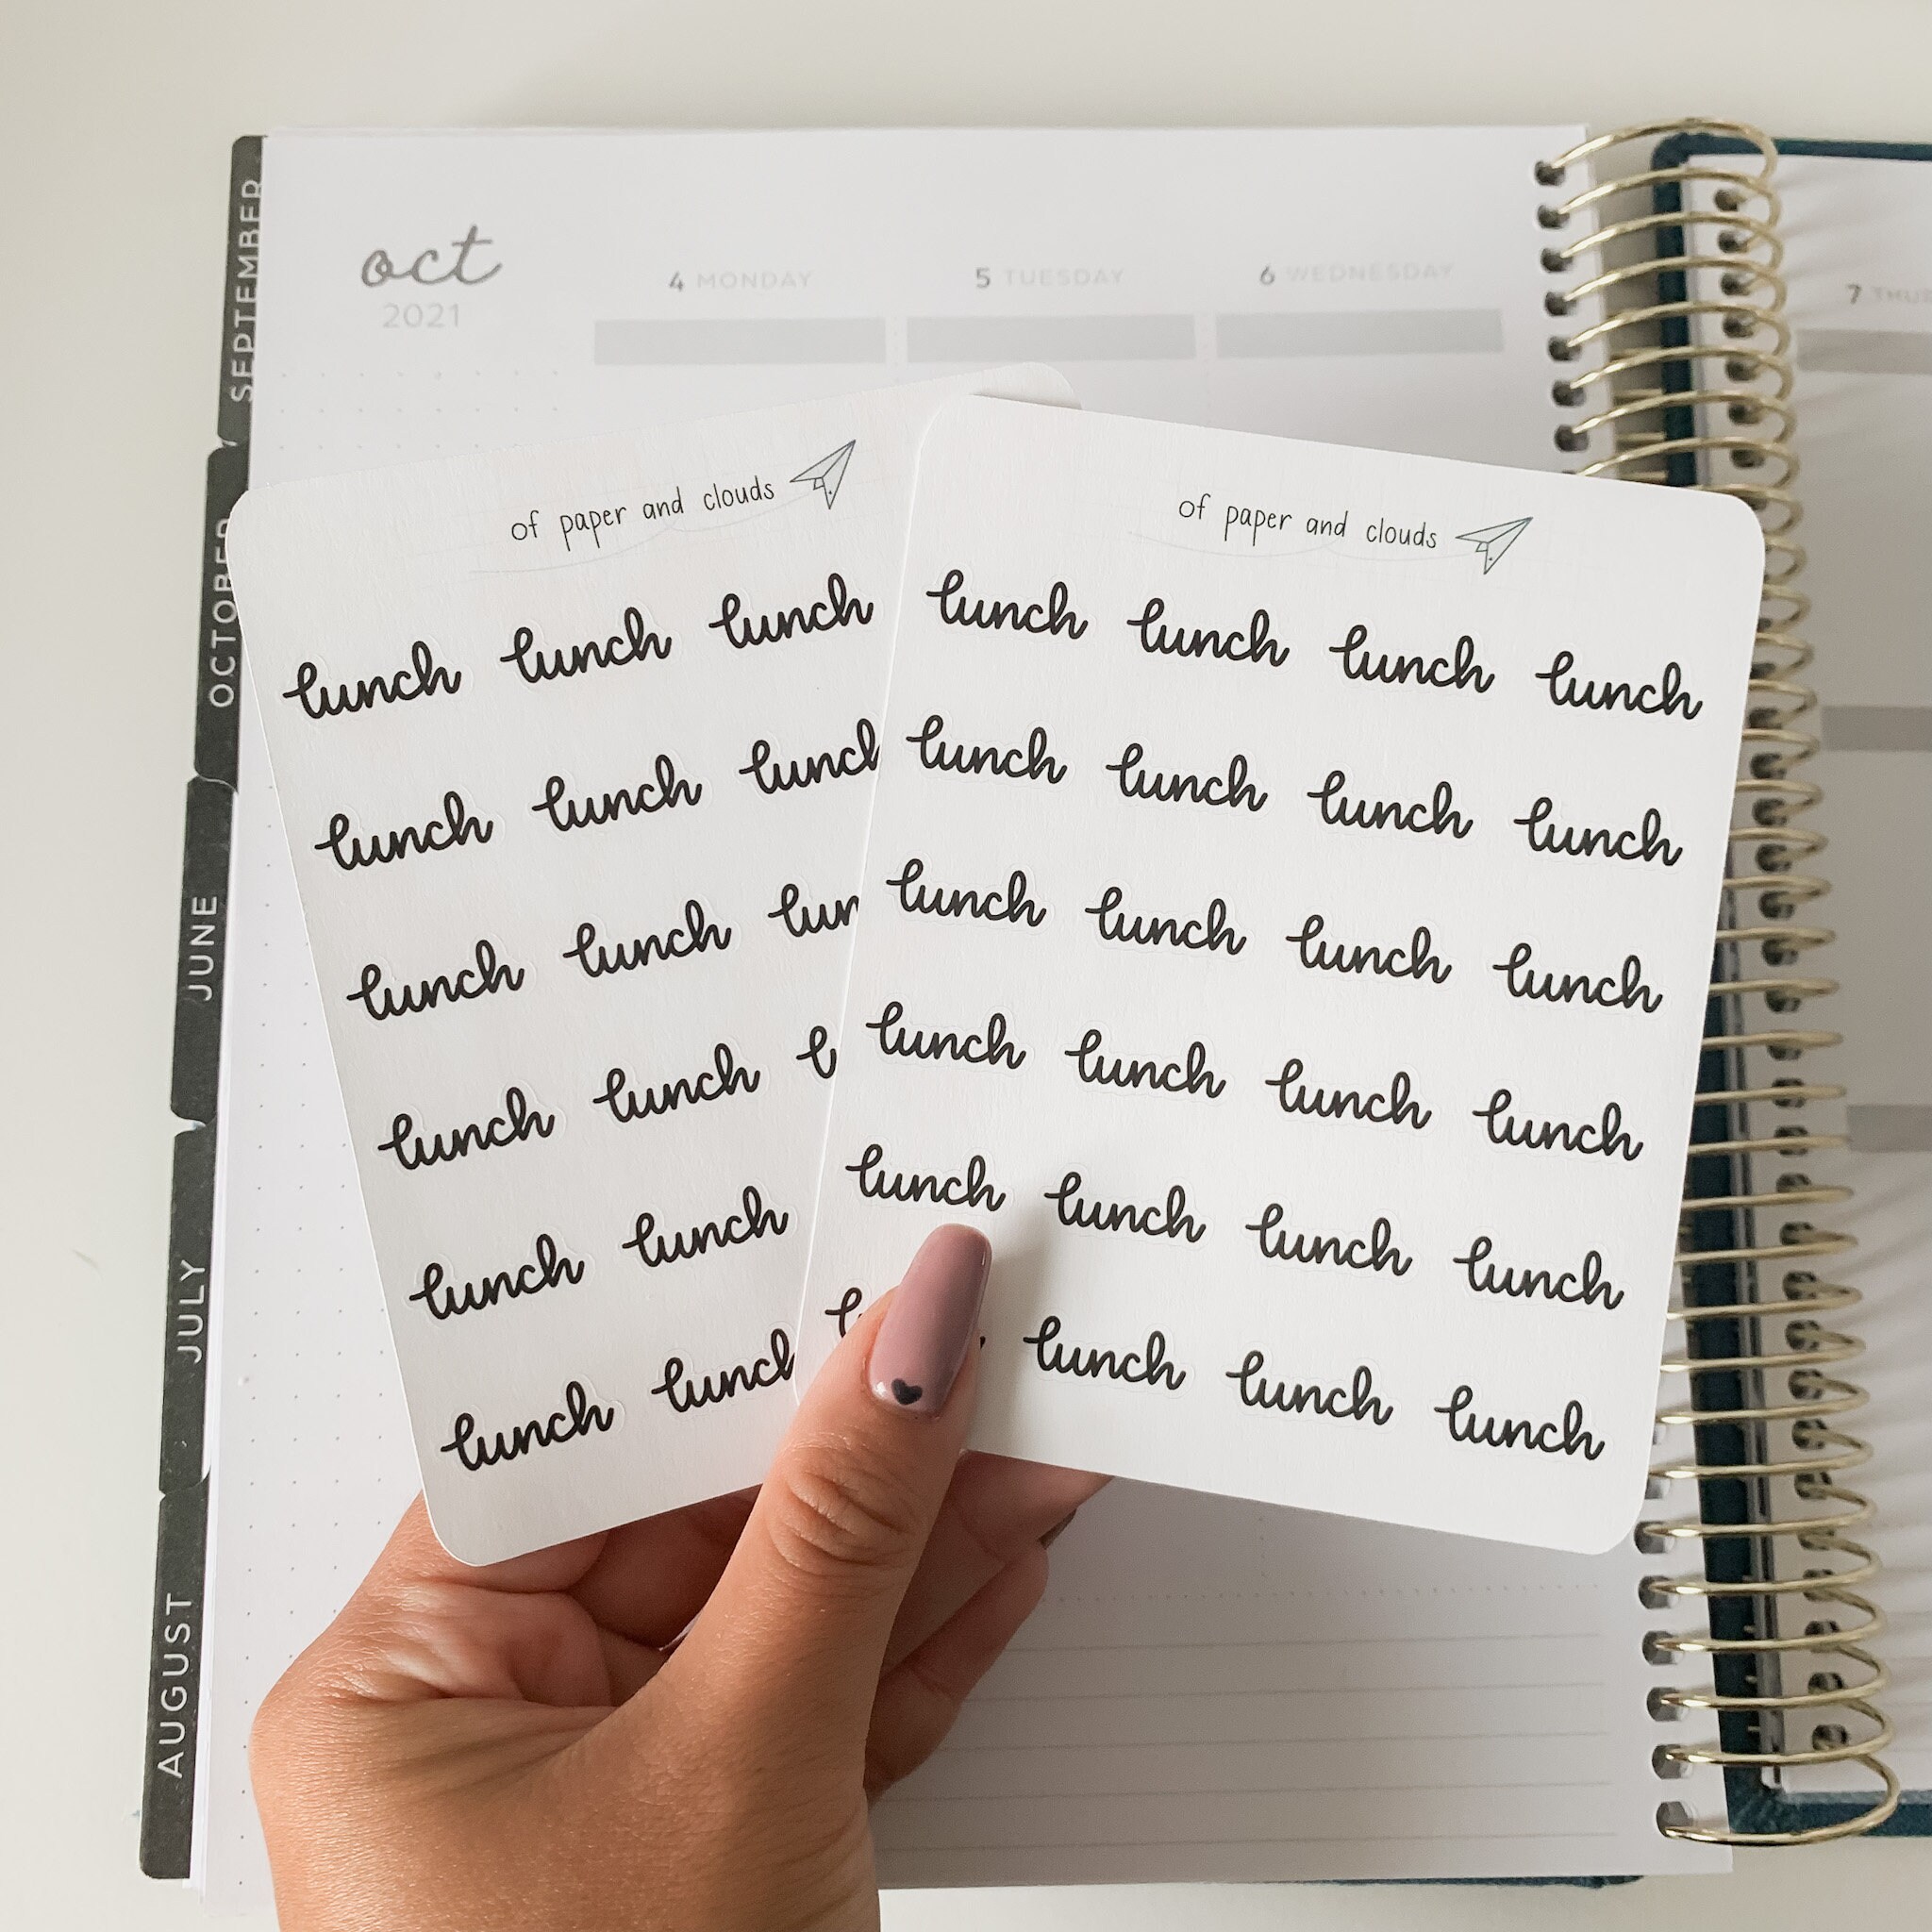 oct
2021
4 MONDAY
5 TUESDAY
6 WEDNESDAY
7 THUR
SEPTEMBER
OCTOBER
JUNE
JULY
AUGUST
of paper and clouds
lunch lunch lunch
lunch lunch lunch
lunch lunch lun
lunch lunch l
lunch lunch
lunch lunch
of paper and clouds
lunch lunch lunch lunch
lunch lunch lunch lunch
lunch lunch lunch lunch
lunch lunch lunch lunch
lunch lunch lunch lunch
lunch lunch lunch